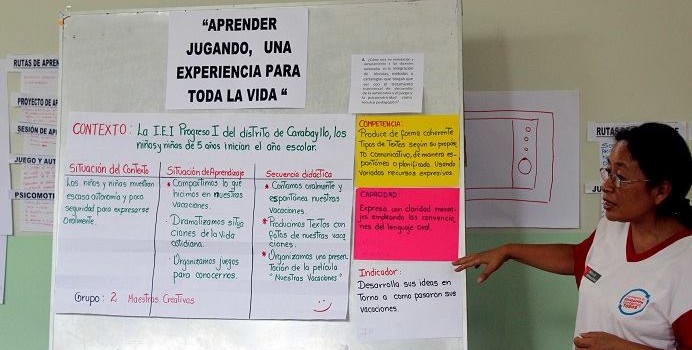 “APRENDER
JUGANDO, UNA
EXPERIENCIA PARA
TODA LA VIDA “
RUTAS DE APREN
PROYECTO DE AP
SESIÓN DE AP
JUEGO Y AUT
PSICOMOT
CONTEXTO: La I.E.I Progreso I del distrito de Carabayllo, los
niños y niñas de 5 años inician el año escolar.
Situación del Contexto
Los niños y niñas muestran
escasa autonomía y poca
seguridad para expresarse
oralmente.
Situación de Aprendizaje
• Compartimos lo que
hicimos en nuestras
vacaciones.
• Dramatizamos situa
ciones de la vida
cotidiana.
• Organizamos juegos
para conocernos.
Secuencia didáctica
* Contamos oralmente y
espontánea nuestras
vacaciones.
* Producimos Textos con
fotos de nuestras vaca
ciones.
* Organizamos una presen
tación de la película
"Nuestras Vacaciones"
Grupo: 2 Maestras Creativas
COMPETENCIA:
Produce de forma coherente
Tipos de Textos según su propósi
to comunicativo, de manera es-
pontánea o planificada. Usando
variados recursos expresivos.
CAPACIDAD:
Expresa con claridad mensa-
jes empleando las convencio-
nes del lenguaje oral.
Indicador:
Desarrolla sus ideas en
Torno a como pasaron sus
vacaciones.
RUTAS DE
JUE